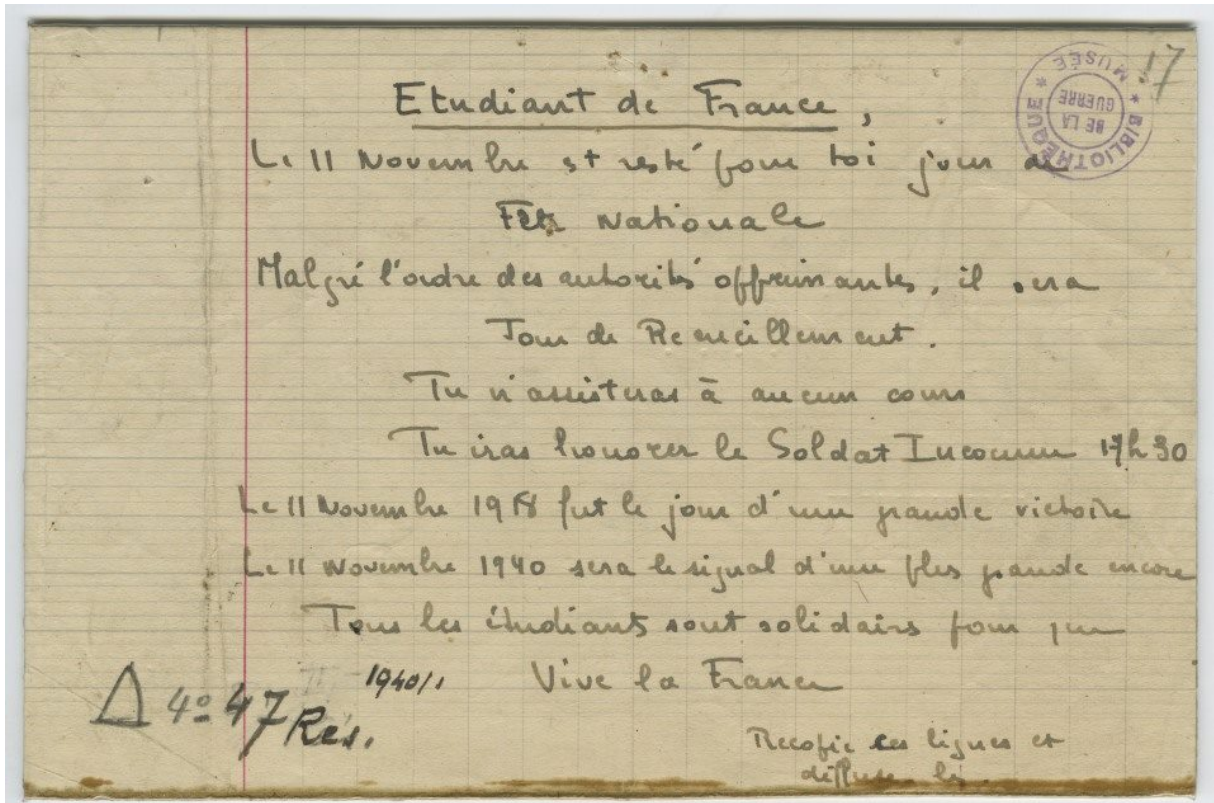 17
BIBLIOTHÈQUE * MUSÉE *
DE LA
GUERRE
Etudiant de France,
Le 11 Novembre est resté pour toi jour de
Fête Nationale
Malgré l'ordre des autorités opprimantes, il sera
Jour de Recueillement.
Tu n'assisteras à aucun cours
Tu iras honorer le Soldat Inconnu 17h30
Le 11 Novembre 1918 fut le jour d'une grande victoire
Le 11 Novembre 1940 sera le signal d'une plus grande encore
Tous les étudiants sont solidaires pour que
Vive la France
Recopie ces lignes et
diffuse les.
Δ 4º 47 Rés.
1940/1